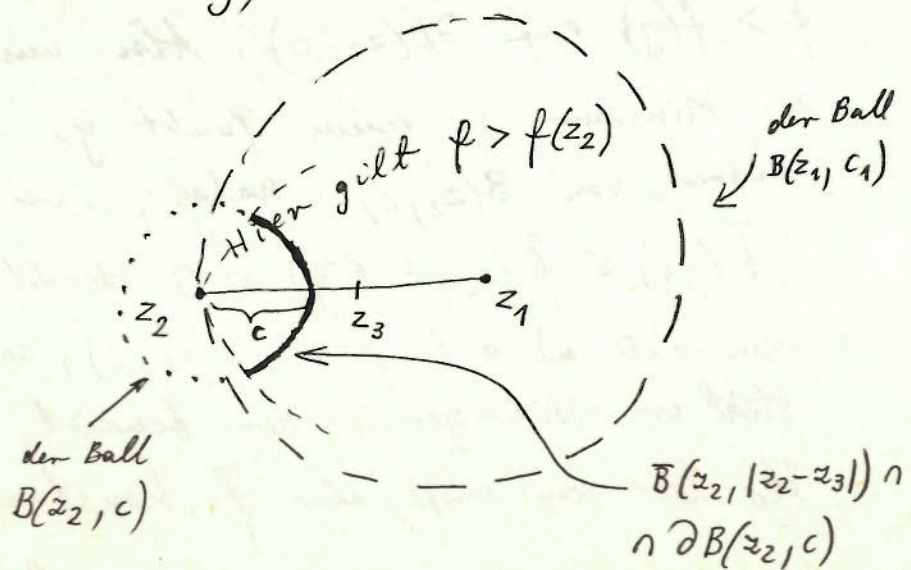 Hier gilt f > f(z₂)
der Ball
B(z₁, c₁)
z₂
c
z₃
z₁
der Ball
B(z₂, c)
B̅(z₂, |z₂-z₃|) ∩
∩ ∂B(z₂, c)